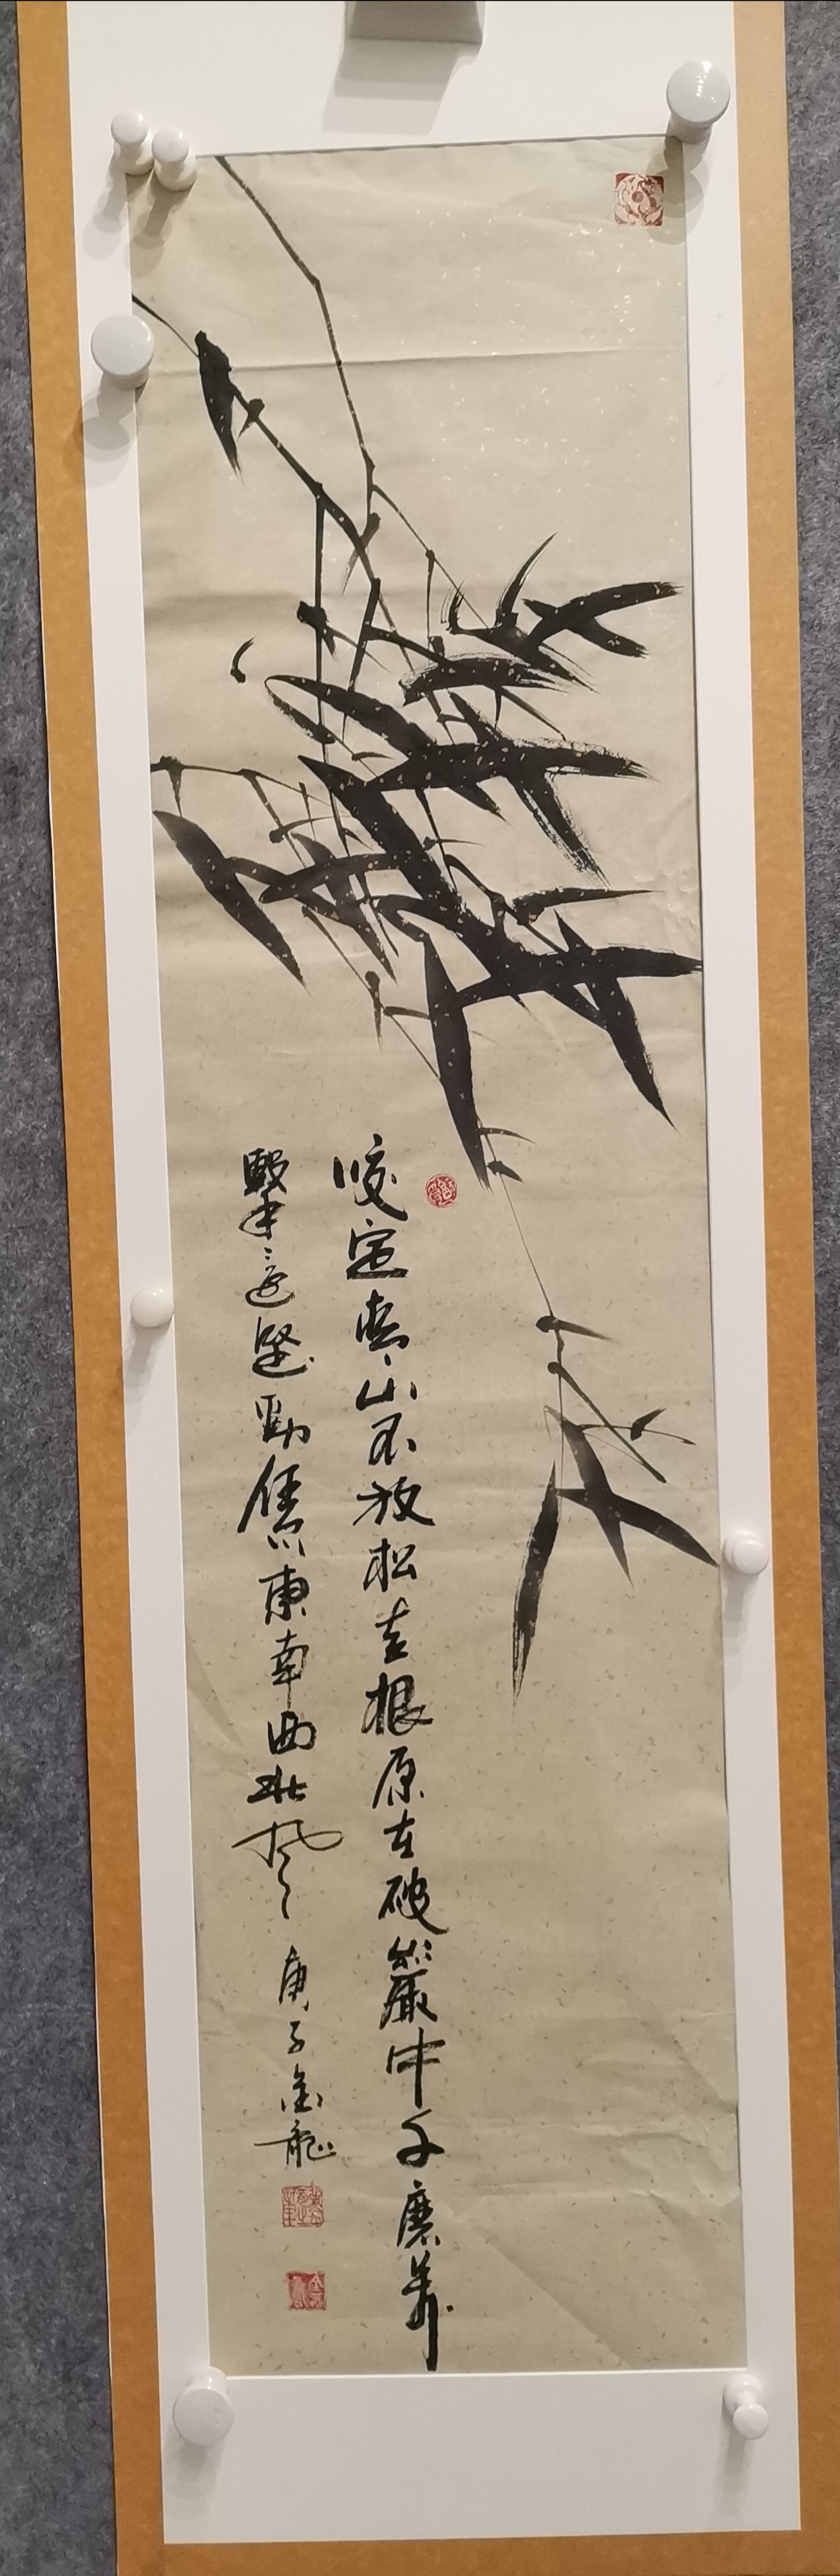 咬定青山不放松立根原在破巖中千磨萬
擊還堅勁任尔東南西北風 庚子金龍